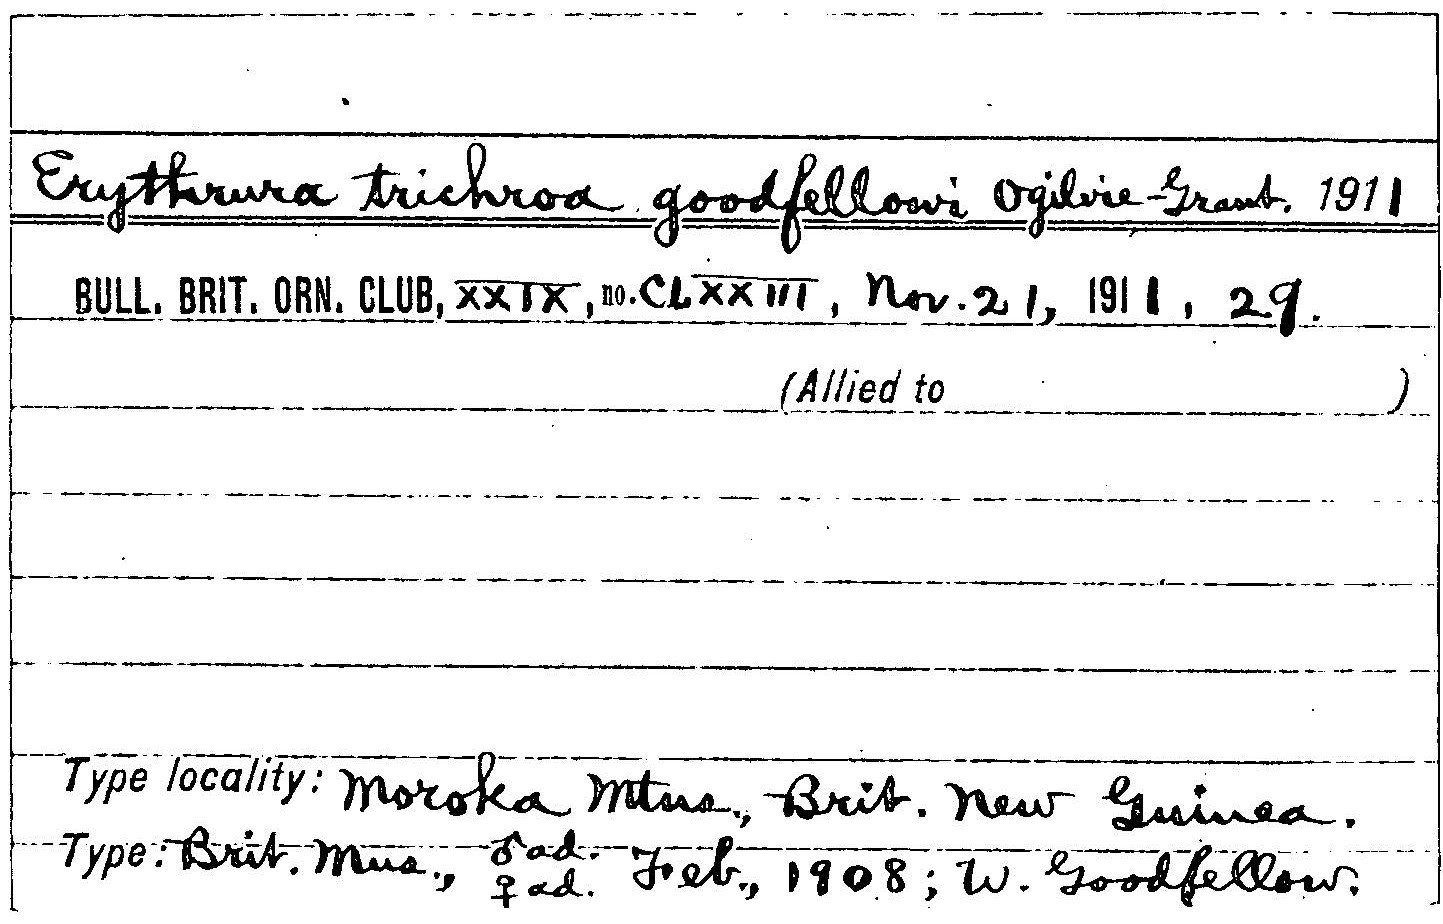 Erythrura trichroa goodfellowi Ogilvie-Grant. 1911
BULL. BRIT. ORN. CLUB, XXIX, no. CLXXIII, Nov. 21, 1911, 29.
(Allied to )
Type locality: Moroka Mtns., Brit. New Guinea.
Type: Brit. Mus., ♂ad. ♀ad. Feb., 1908; W. Goodfellow.